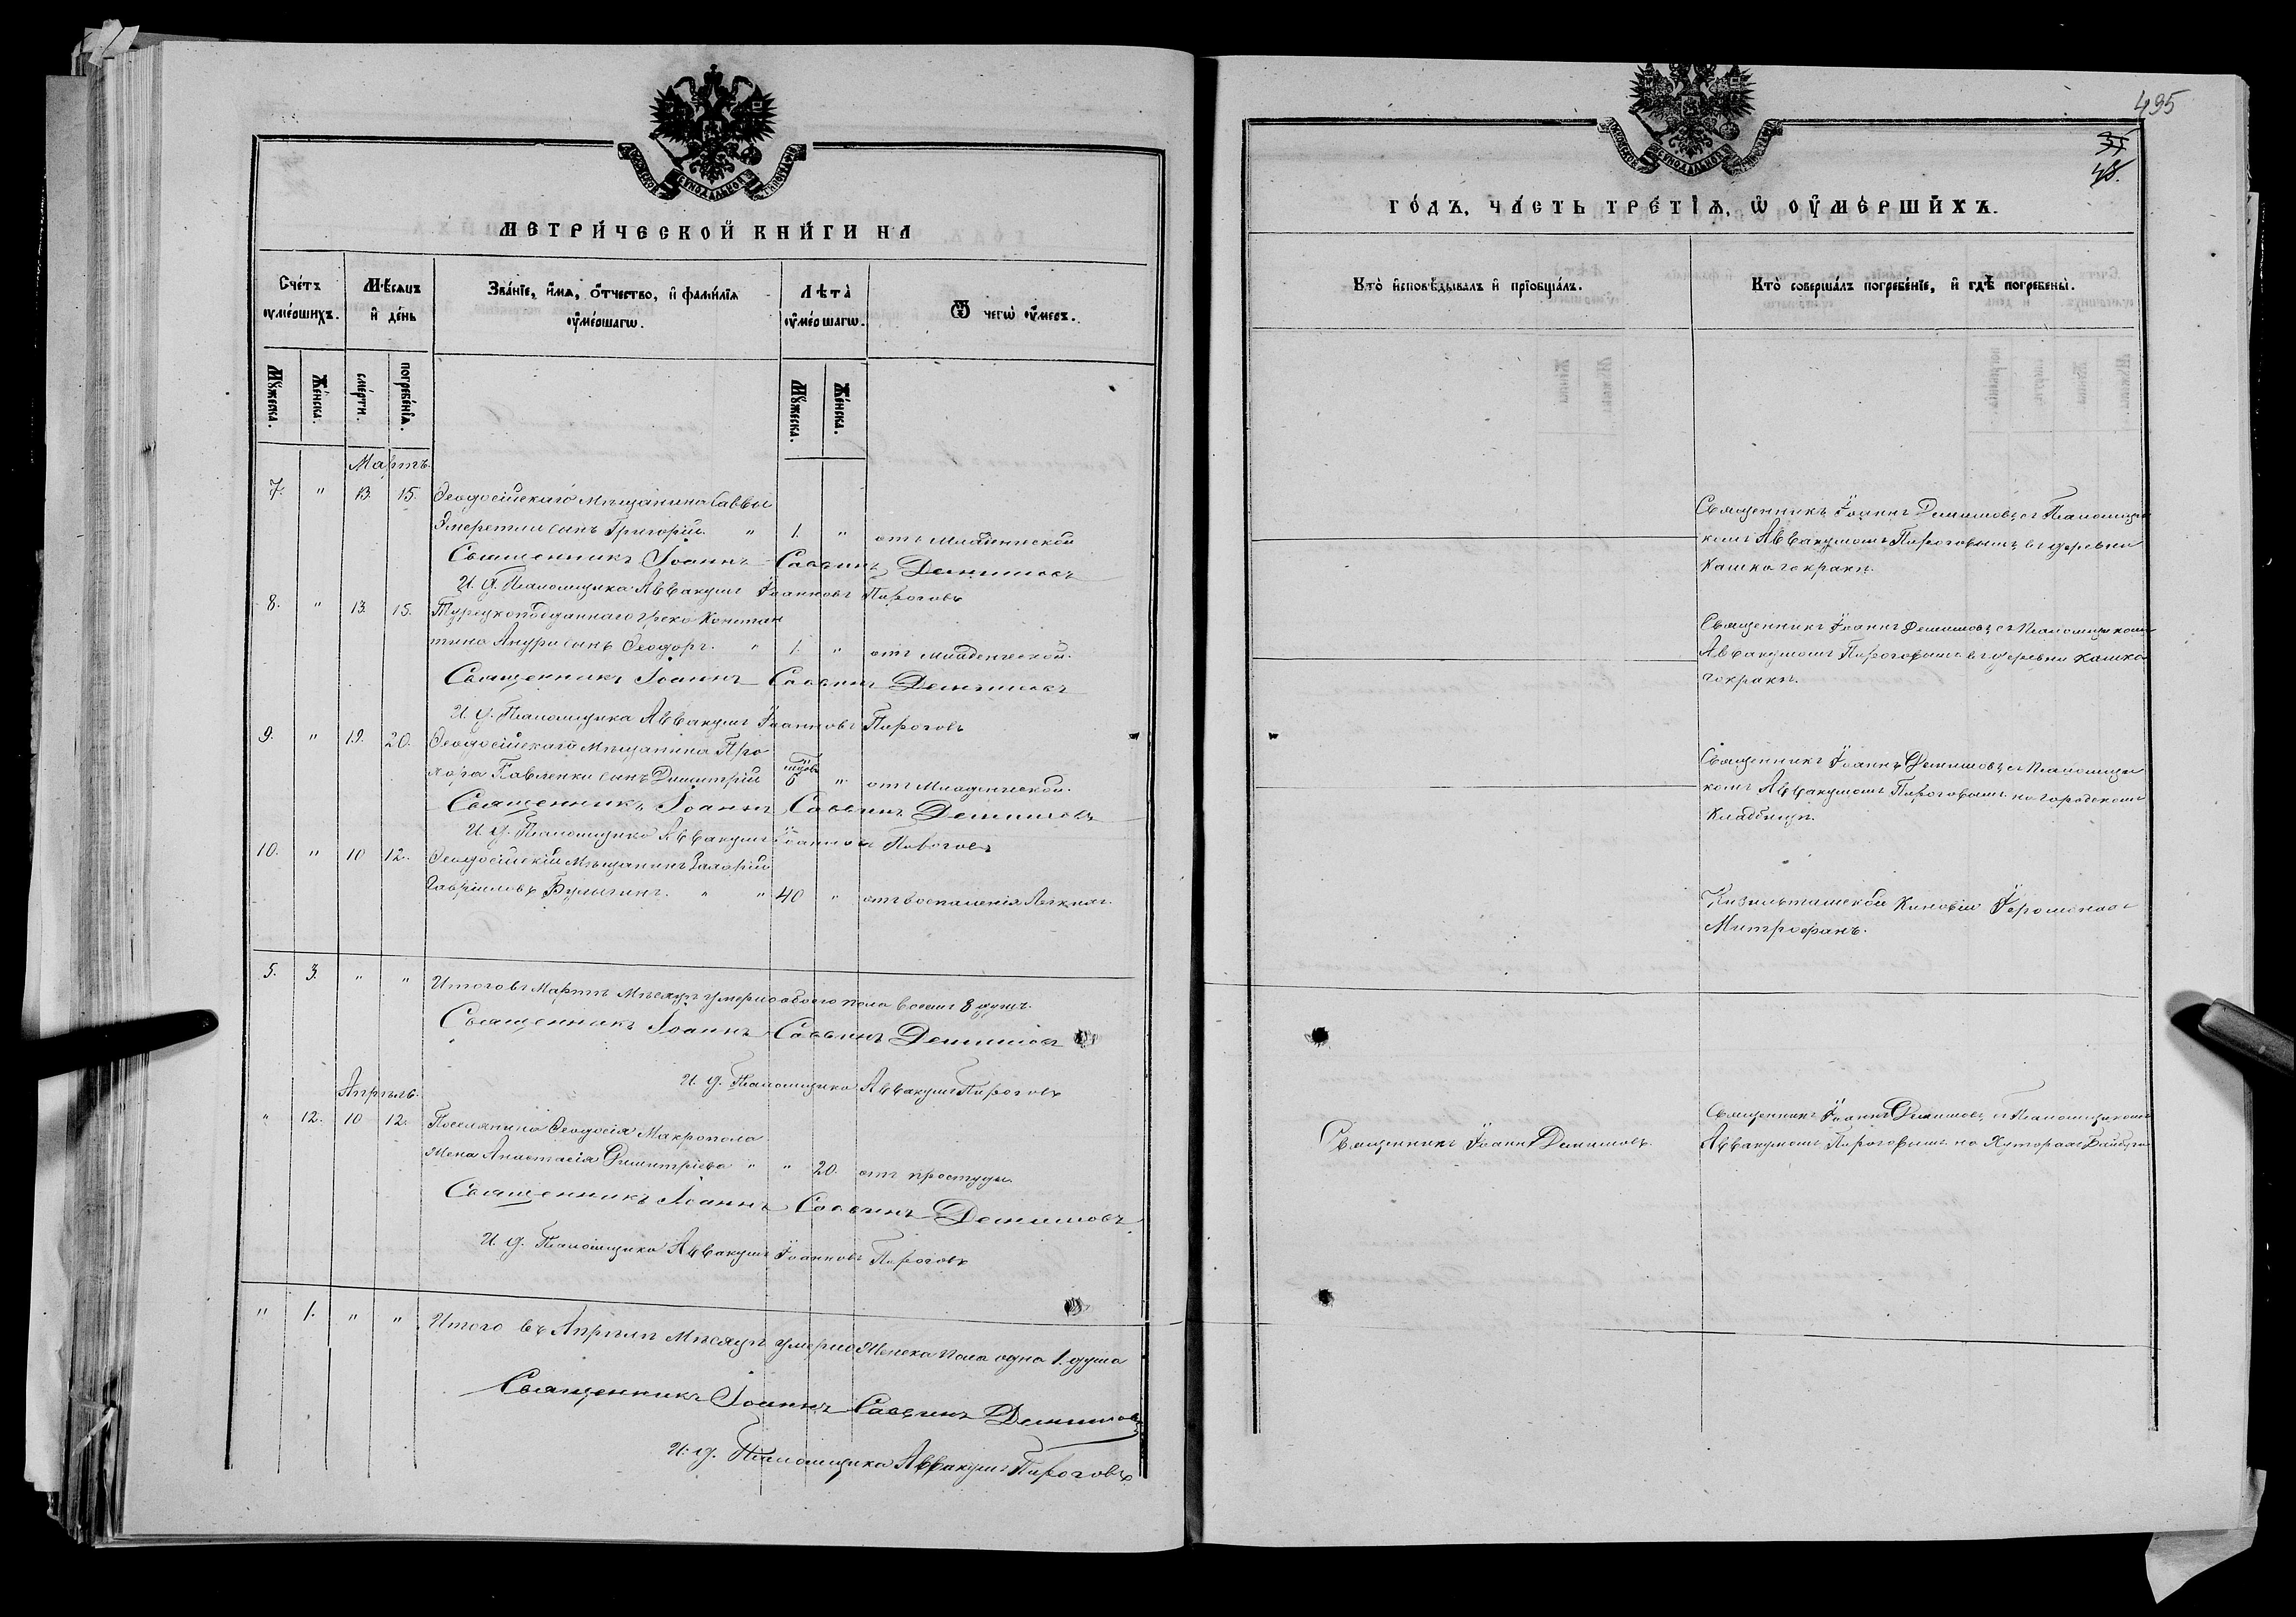 МЕТРИ́ЧЕСКОЙ КНИ́ГИ НА
Сче́тъ оумершихъ.
Мѣ́сяцъ и де́нь
Зва́нїе, и́мя, о́тчество, и фами́лїя оуме́ршагѡ.
Лѣта̀ оуме́ршагѡ.
Ѿ чегѡ̀ оу́меръ.
Мꙋ́жеска.
Же́нска.
сме́рти.
погребе́нїѧ.
Мꙋ́жеска.
Же́нска.
Мартъ
7. " 13. 15. Ѳеодосійскаго Мѣщанина Саввы
Эмеретли сынъ Григорій. " 1. " отъ младенческой
Священникъ Іоаннъ Саввинъ Демишовъ
И. д. Псаломщика Аввакумъ Іоанновъ Пироговъ
8. " 13. 15. Турецкоподданнаго Грека Констан
тина сынъ Ѳеодоръ. " 1. " отъ младенческой.
Священникъ Іоаннъ Саввинъ Демишовъ
И. д. Псаломщика Аввакумъ Іоанновъ Пироговъ
9. " 19. 20. Ѳеодосійскаго Мѣщанина Про
хора Павленки сынъ Димитрій 6 " отъ Младенческой.
Священникъ Іоаннъ Саввинъ Демишовъ
И. д. Псаломщика Аввакумъ Іоанновъ Пироговъ
10. " 10 12. Ѳеодосійскій Мѣщанинъ
Гавріиловъ Булыгинъ. " " 40 " отъ воспаленія Легкихъ.
5. 3. " " Итого въ Мартѣ Мѣсяцѣ умерло обоего пола восемь 8 душъ.
Священникъ Іоаннъ Саввинъ Демишовъ
И. д. Псаломщика Аввакумъ Пироговъ
Апрѣль.
" 12. 10 12. Поселянина Ѳеодосія Макропола
жена Анастасія Димитріева " " 20. отъ простуды.
Священникъ Іоаннъ Саввинъ Демишовъ
И. д. Псаломщика Аввакумъ Іоанновъ Пироговъ
" 1. " " Итого въ Апрѣлѣ Мѣсяцѣ умерло Женска пола одна 1. душа
Священникъ Іоаннъ Саввинъ Демишовъ
И. д. Псаломщика Аввакумъ Пироговъ
495
48.
ГО́ДЪ, ЧА́СТЬ ТРЕ́ТЇѦ, Ѡ ОУМЕ́РШИХЪ.
Кто̀ исповѣ́дывалъ и прїобща́лъ.
Кто̀ соверша́лъ погребе́нїе, и гдѣ̀ погребены̀.
Священникъ Іоаннъ Демишовъ, съ Псаломщи
комъ Аввакумомъ Пироговымъ, въ деревни
Кашка чокракъ.
Священникъ Іоаннъ Демишовъ, съ Псаломщикомъ
Аввакумомъ Пироговымъ въ деревни Кашка
чокракъ.
Священникъ Іоаннъ Демишовъ, съ Псаломщи
комъ Аввакумомъ Пироговымъ на городскомъ
Кладбищѣ.
Кизильташской Киновіи Іеромонахъ
Митрофанъ.
Священникъ Іоаннъ Демишовъ.
Священникъ Іоаннъ Демишовъ, съ Псаломщикомъ
Аввакумомъ Пироговымъ на Хуторахъ